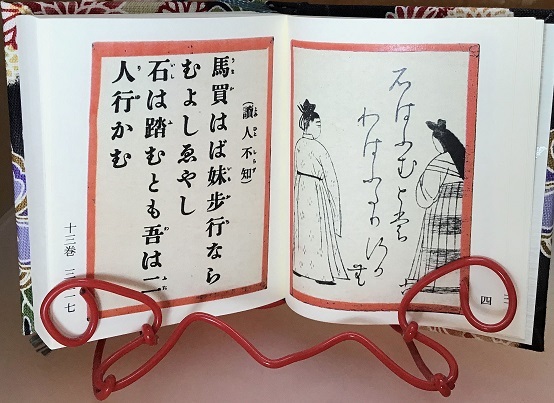 石はふむとも
わはふたりゆかむ
(讀人不知)
馬買はば妹歩行なら
むよしゑやし
石は踏むとも吾は二
人行かむ
十三巻 三三一七
四